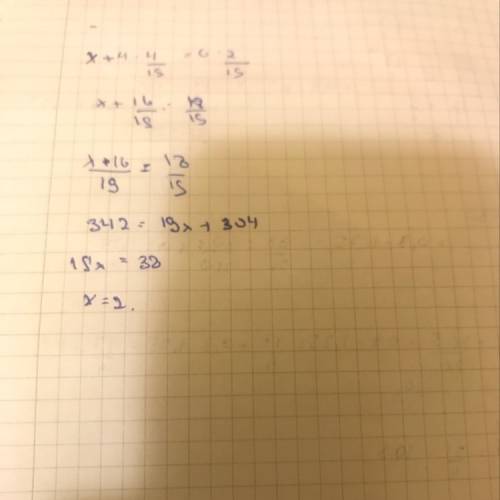 x + 4 · 4/19 = 6 · 2/15
x + 16/19 · 18/15
x + 16/19 = 18/15
342 = 19x + 304
19x = 38
x = 2.